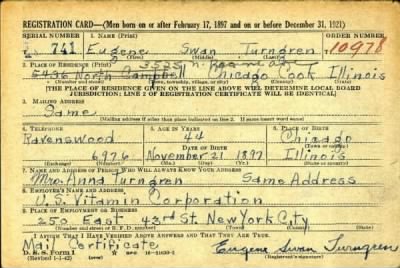 REGISTRATION CARD—(Men born on or after February 17, 1897 and on or before December 31, 1921)
SERIAL NUMBER 1. NAME (Print) ORDER NUMBER
741 Eugene Swan Turngren 10978
(First) (Middle) (Last)
2. PLACE OF RESIDENCE (Print)
North Campbell Chicago Cook Illinois
(Number and street) (Town, township, village, or city) (County) (State)
[THE PLACE OF RESIDENCE GIVEN ON THE LINE ABOVE WILL DETERMINE LOCAL BOARD
JURISDICTION; LINE 2 OF REGISTRATION CERTIFICATE WILL BE IDENTICAL]
3. MAILING ADDRESS
Same
[Mailing address if other than place indicated on line 2. If same insert word same]
4. TELEPHONE 5. AGE IN YEARS 6. PLACE OF BIRTH
Ravenswood 44 Chicago
DATE OF BIRTH
6976 November 21 1897 Illinois
(Exchange) (Number) (Mo.) (Day) (Yr.) (State or country)
7. NAME AND ADDRESS OF PERSON WHO WILL ALWAYS KNOW YOUR ADDRESS
Mrs. Anna Turngren Same Address
8. EMPLOYER'S NAME AND ADDRESS
U.S. Vitamin Corporation
9. PLACE OF EMPLOYMENT OR BUSINESS
250 East 43rd St. New York City
(Number and street or R. F. D. number) (Town) (County) (State)
I AFFIRM THAT I HAVE VERIFIED ABOVE ANSWERS AND THAT THEY ARE TRUE.
Mail Certificate
D. S. S. Form 1
(Revised 1-1-42) (over) Eugene Swan Turngren